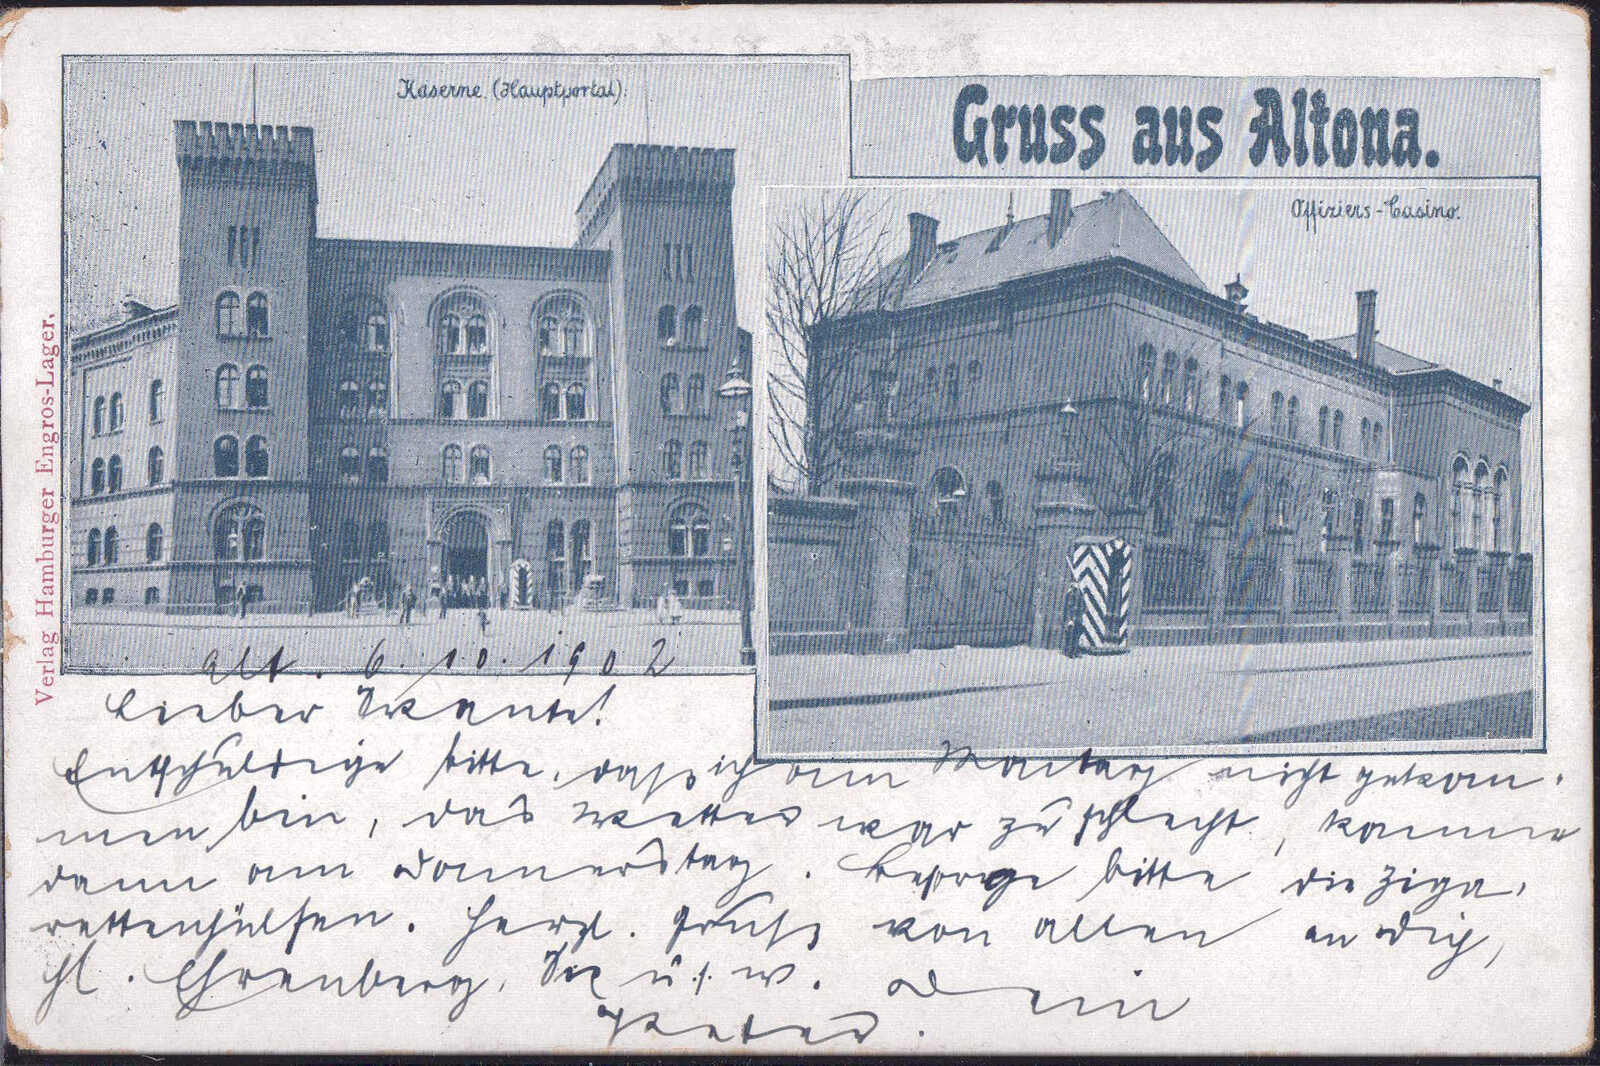 Kaserne. (Hauptportal).
Gruss aus Altona.
Offiziers-Casino.
Verlag Hamburger Engros-Lager.
Alt. 6. 10. 1902
Lieber
Entschuldige bitte, dass ich am Montag nicht gekom-
men bin, das Wetter war zu schlecht, komme
dann am Donnerstag. Besorge bitte die Ziga-
rettenhülsen. Herzl. Gruss von allen an Dich,
Ehrenberg, u.s.w. Dein
Peter.